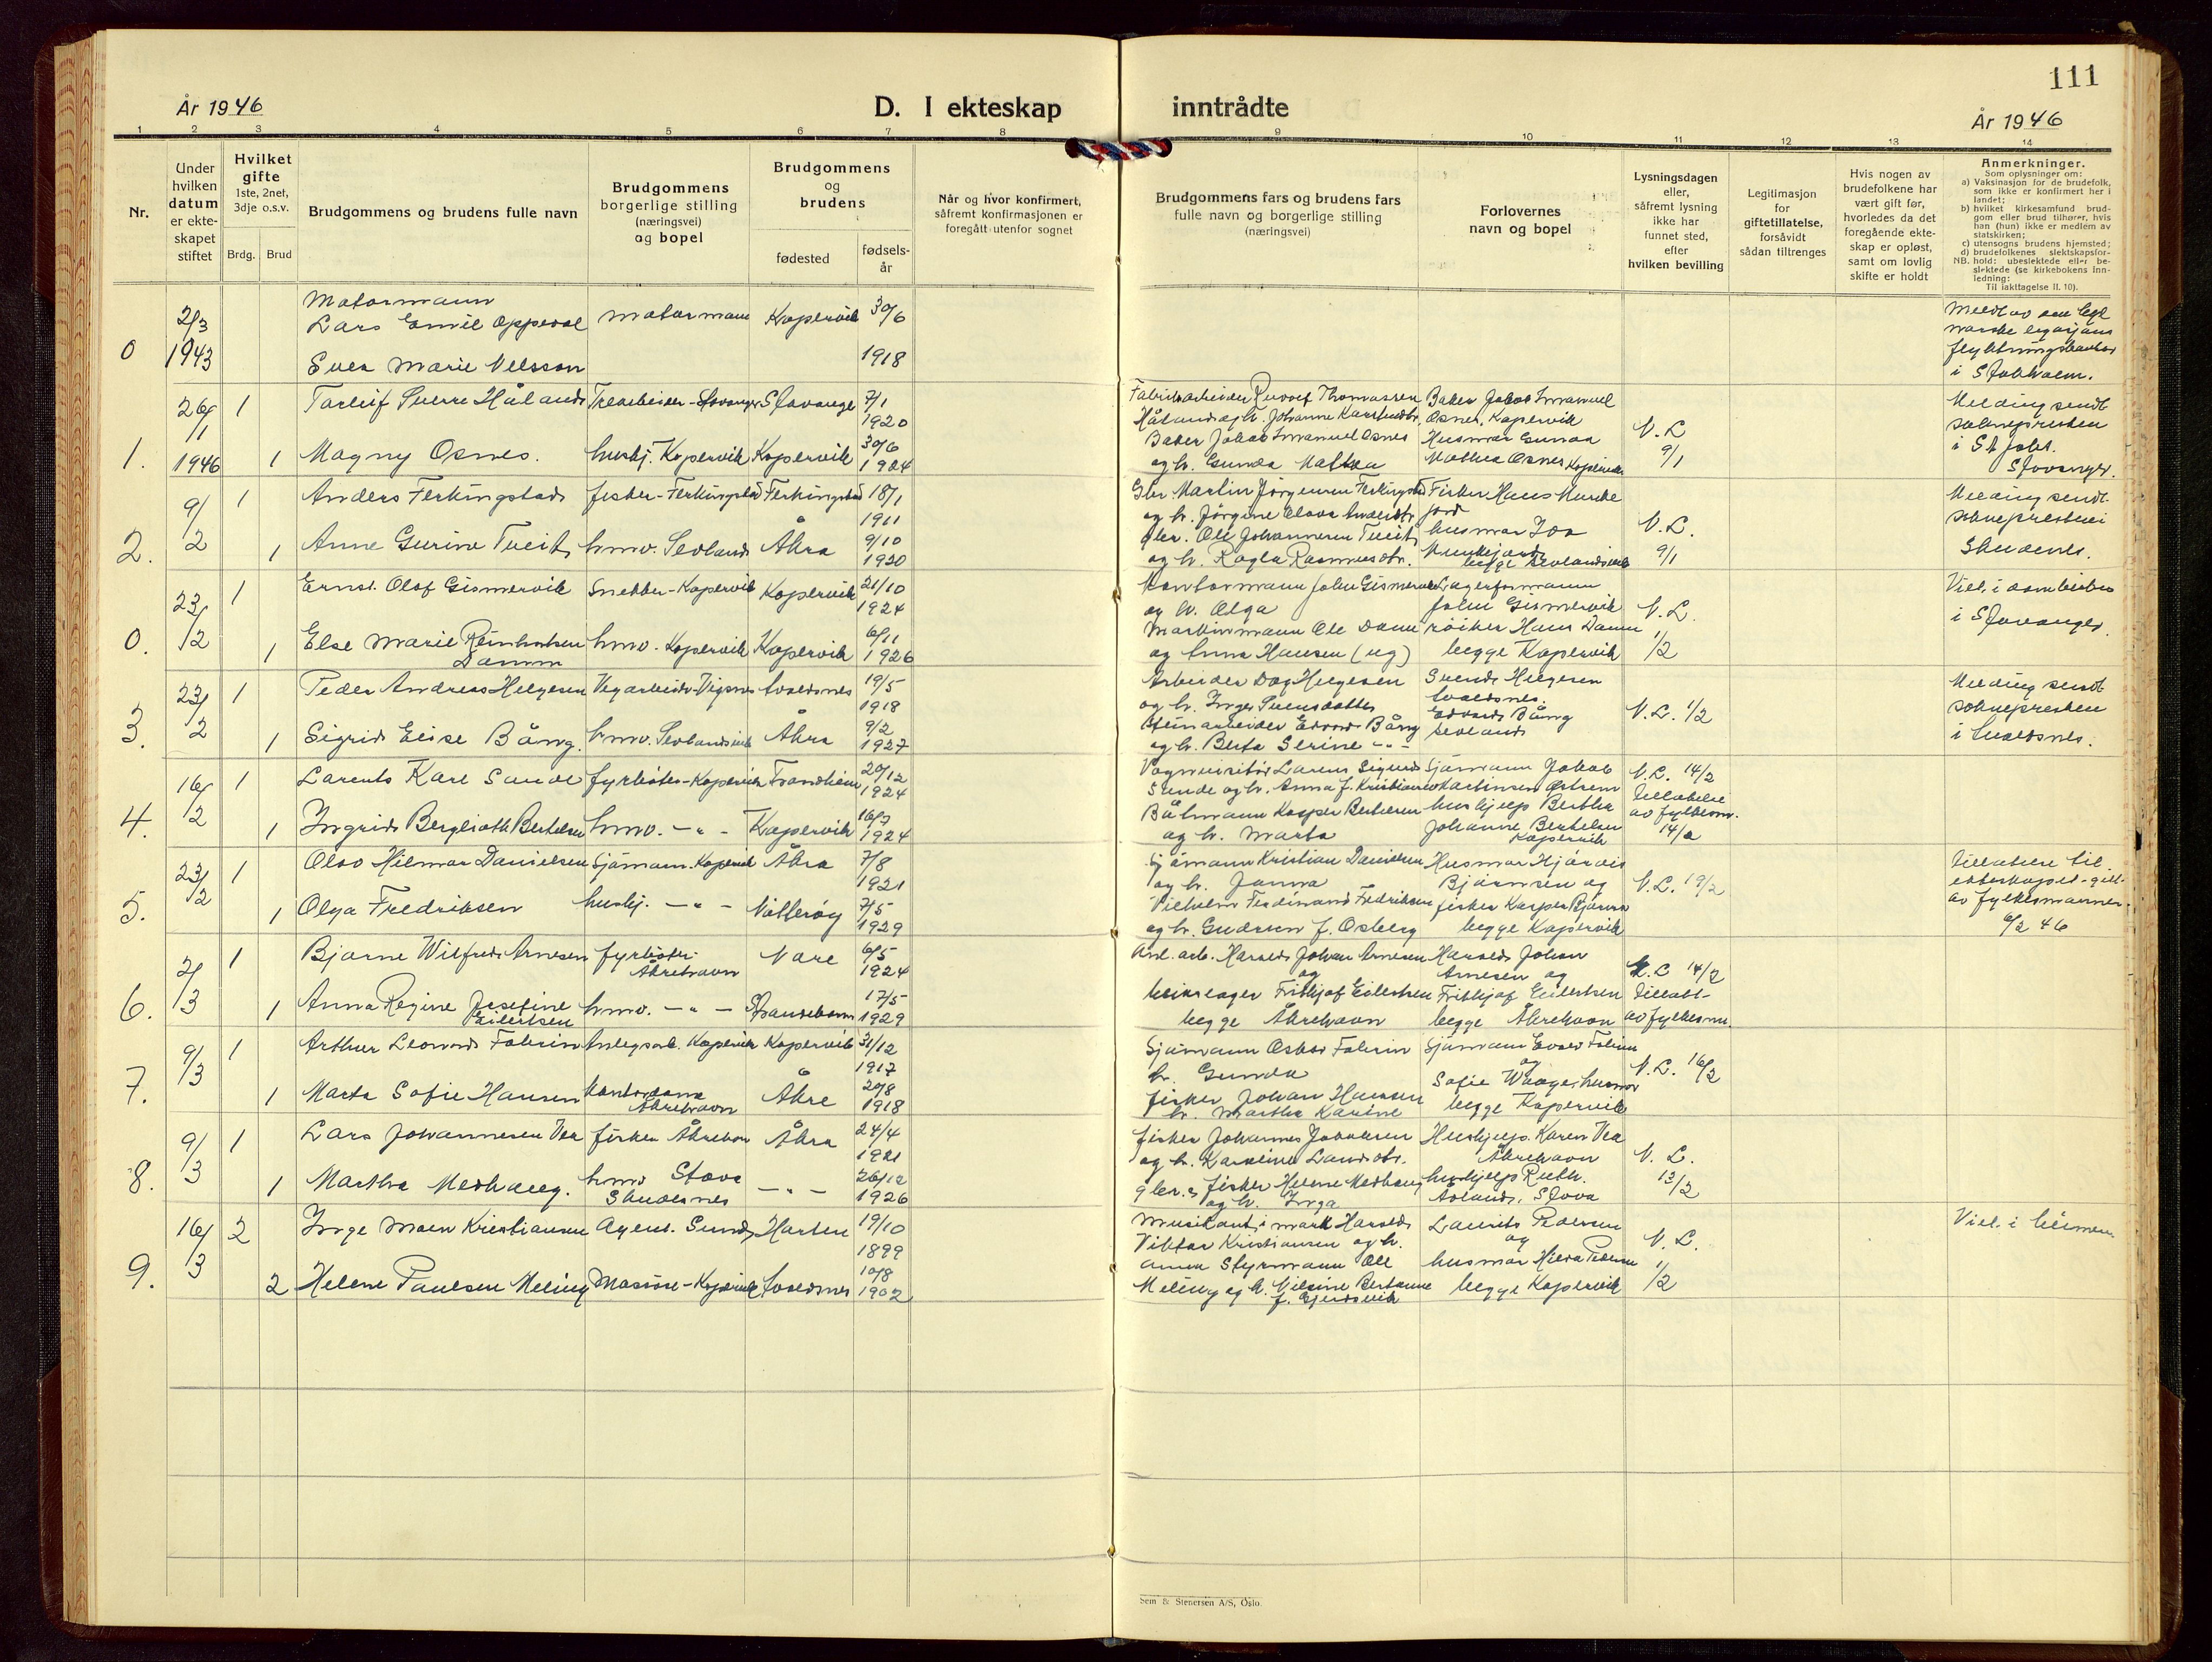 111
År 1946
D. I ekteskap inntrådte
År 1946
1 2 3 4 5 6 7 8 9 10 11 12 13 14
Nr.
Under hvilken datum er ekteskapet stiftet
Hvilket gifte
1ste, 2net, 3dje o.s.v.
Brdg. Brud
Brudgommens og brudens fulle navn
Brudgommens borgerlige stilling (næringsvei) og bopel
Brudgommens og brudens
fødested
fødselsår
Når og hvor konfirmert, såfremt konfirmasjonen er foregått utenfor sognet
Brudgommens fars og brudens fars fulle navn og borgerlige stilling (næringsvei)
Forlovernes navn og bopel
Lysningsdagen eller, såfremt lysning ikke har funnet sted, efter hvilken bevilling
Legitimasjon for giftetillatelse, forsåvidt sådan tiltrenges
Hvis nogen av brudefolkene har vært gift før, hvorledes da det foregående ekteskap er opløst, samt om lovlig skifte er holdt
Anmerkninger.
Som oplysninger om:
a) Vaksinasjon for de brudefolk, som ikke er konfirmert her i landet;
b) hvilket kirkesamfund brudgom eller brud tilhører, hvis han (hun) ikke er medlem av statskirken;
c) utensogns brudens hjemsted;
d) brudefolkenes slektskapsforhold: ubeslektede eller beslektede (se kirkebokens Innledning:
NB. Til iakttagelse II. 10).
0 2/3 1943
Motormann
Lars Emil
motormann Kopervik 30/6
Marie Nelsson 1918
i Stockholm.
1. 26/1 1946
1 Torleif Sverre Håland Stavanger 7/1 1920
1 Magny Osnes. hushj. Kopervik Kopervik 30/6 1924
Baker Jakob Immanuel Osnes, Kopervik
Baker Jakob Immanuel Osnes
og h. Gunda Mathea
Husmor Gunda Mathea Osnes Kopervik
V. L. 9/1
Melding sendt soknepresten i St. Joh. Stavanger.
2. 9/2
1 Anders Ferkingstad fisker - Ferkingstad Ferkingstad 18/1 1911
1 Anne Gurine Tveit hmv. Sevland Åkra 9/10 1920
Gbr. Martin Jørgensen Ferkingstad
og h. Jørgine Olava
gbr. Ole Johannesen Tveit
og h. Ragla Rasmusdtr.
V. L. 9/1
Melding sendt sokneprestene i Skudenes.
0. 23/2
1 Ernst Olaf Gismervik Snekker - Kopervik Kopervik 21/10 1924
1 Else Marie Reinholdsen Damm hmv. Kopervik Kopervik 6/11 1926
Kontormann John Gismervik
og h. Olga
Maskinmann Ole Damm
og Anna Hansen (ug)
Lagerformann John Gismervik
røiker Hans Damm
begge Kopervik
V. L. 1/2
Viel. i domkirken i Stavanger.
3. 23/2
1 Peder Andreas Helgesen Vegarbeider - Vigsnes Avaldsnes 19/5 1918
1 Sigrid Elise Bång. hmv. Sevlandsvik Åkra 9/2 1927
Arbeider Dag Helgesen
og h. Inger Svensdatter
Steinarbeider Edvard Bång
og h. Berta Serine - " -
Svend Helgesen Avaldsnes.
Edvard Bång Sevland
V. L. 1/2
Melding sendt soknepresten i Avaldsnes.
4. 16/2
1 Larents Kåre Sunde fyrbøter - Kopervik Trondheim 20/12 1924
1 Ingrid Berglioth Bertelsen hmv. - " - Kopervik 16/7 1924
Vognvisitør Larens Sigurd Sunde og h. Anna f. Kristiansen
Båtmann Kasper Bertelsen
og h. Marta
Sjømann Jakob Martinsen Østrem
hushjelp Bertha Johanne Bertelsen Kopervik
V. L. 14/2
Tillatelse av fylkesm. 14/2
5. 23/2
1 Olav Hilmar Danielsen Sjømann. Kopervik Åkra 7/8 1921
1 Olga Fredriksen hushj. - " - Nøtterøy 7/5 1929
Sjømann Kristian Danielsen
og h. Janna
Vilhelm Ferdinand Fredriksen
og h. Gudrun f. Osberg
Husmor Hjørdis Bjørnsen og
fisker Kasper Bjørns
begge Kopervik
V. L. 19/2
Tillatelse til ekteskapet - gitt av fylkesmannen. 6/2 46
6. 2/3
1 Bjarne Wilfred Arnesen fyrbøter. Åkrehavn Nore 6/5 1924
1 Anna Regine Josefine Eilertsen hmv. - " - 17/5 1929
Anl. arb. Harald Johan Arnesen
og
Fritkjof Eilertsen
begge Åkrehavn
Harald Johan Arnesen og
Fritkjof Eilertsen
begge Åkrehavn
V. L. 14/2
Tillatt av fylkesm.
7. 9/3
1 Arthur Leonard Falkeid Anlegsarb. Kopervik Kopervik 31/12 1917
1 Marta Sofie Hansen Kontordame Åkrehavn Åkre 20/8 1918
Sjømann Oskar
h. Gunda
fisker Johan Hansen
h. Martha Karine
Sjømann
og
Sofie Waage, husmor
begge Kopervik
V. L. 16/2
8. 9/3
1 Lars Johannesen Vea fisker Åkrehavn Åkra 24/4 1921
1 Martha Medhaug. hmv Stava Skudesnes - " - 26/12 1926
fisker Johannes Jakobsen
og h. Karoline Larsdtr.
gbr. & fisker Helene Medhaug
og h. Inga
Hushjelp. Karen Vea Åkrehavn
hushjelp Ruth. Åsland, Stava
V. L. 13/2
9. 16/3
2 Inge Moen Kristiansen Agent. Sund Horten 19/10 1899
2 Helene Paulsen Meling Massøse - Kopervik Avaldsnes 10/8 1902
Musikant i mark Harald Viktor Kristiansen og h. Anna
Styrmann Ole Meling og h. Nilsine Bertonne f. Gjerdsvik
Laurits Pedersen
og
husmor Hilda Pedersen
begge Kopervik
V. L. 1/2
Viel. i
Sem & Stenersen A/S, Oslo.